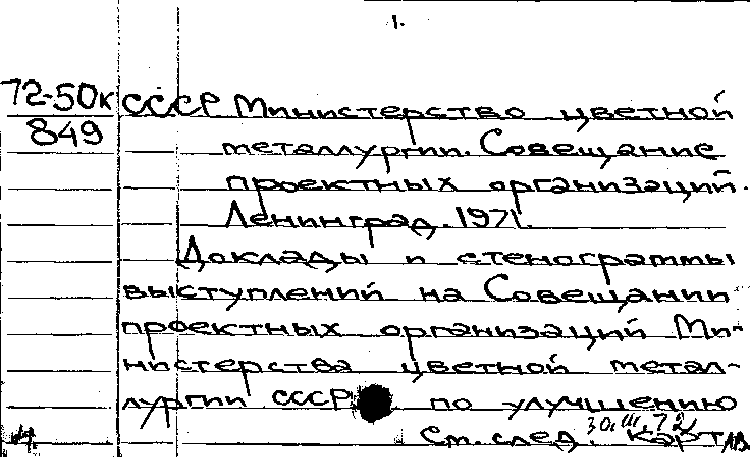 1.
72-50к СССР Министерство цветной
849
металлургии. Совещание
проектных организаций.
Ленинград. 1971.
Доклады и стенограммы
выступлений на Совещании
проектных организаций Ми-
нистерства цветной метал-
лургии СССР по улучшению
30.III.72
См. след. карт